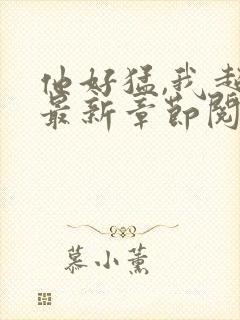 他好猛,我超
最新章节阅
慕小薰